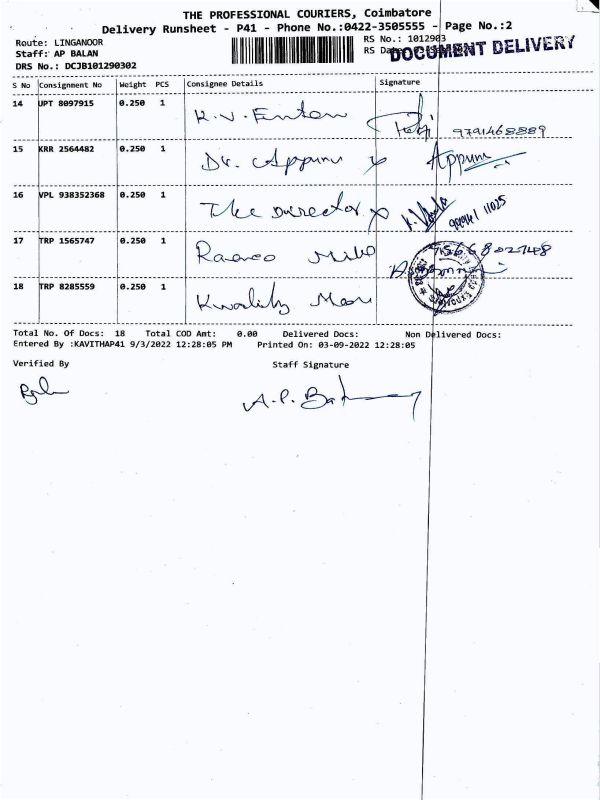 THE PROFESSIONAL COURIERS, Coimbatore
Delivery Runsheet - P41 - Phone No.:0422-3505555 - Page No.:2
Route: LINGANOOR
RS No.: 1012903
Staff: AP BALAN
RS Date
DOCUMENT DELIVERY
DRS No.: DCJB101290302
S No Consignment No Weight PCS Consignee Details Signature
14 UPT 8097915 0.250 1 K.V. 9791468889
15 KRR 2564482 0.250 1 Dr. Appunu Appunu
16 VPL 938352368 0.250 1 The Director
17 TRP 1565747 0.250 1
18 TRP 8285559 0.250 1 Kwality
Total No. Of Docs: 18 Total COD Amt: 0.00 Delivered Docs: Non Delivered Docs:
Entered By :KAVITHAP41 9/3/2022 12:28:05 PM Printed On: 03-09-2022 12:28:05
Verified By Staff Signature
A.P.